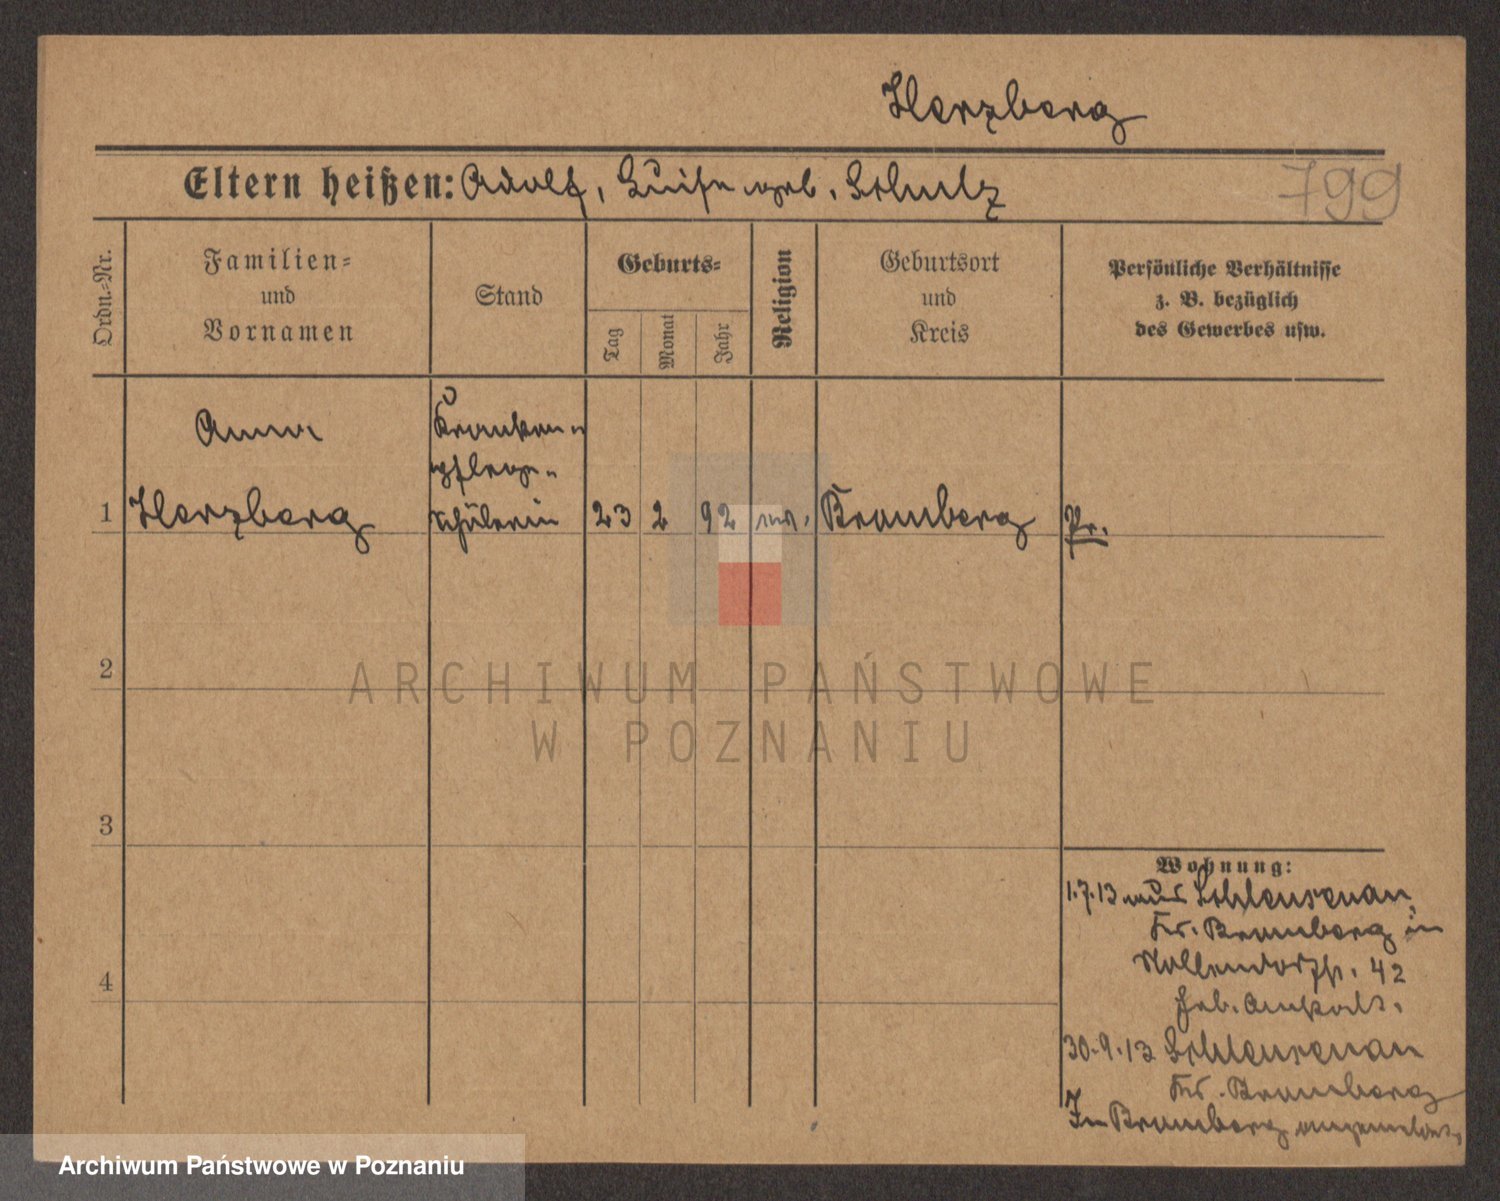 Herzberg
Eltern heißen: Adolf, Luise geb. Schulz
799
Ordn.-Nr.
Familien-
und
Vornamen
Stand
Geburts-
Tag
Monat
Jahr
Religion
Geburtsort
und
Kreis
Persönliche Verhältnisse
z. B. bezüglich
des Gewerbes usw.
Anna
Kranken-
pflege-
1 Herzberg schülerin 23 2 92 ev. Bromberg Pr.
2
ARCHIWUM PAŃSTWOWE
W POZNANIU
3
Wohnung:
1.7.13 aus Schleusenau,
Kr. Bromberg in
4
Nollendorfstr. 42
30.9.13 Schleusenau
Kr. Bromberg
In Bromberg angemeldet.
Archiwum Państwowe w Poznaniu